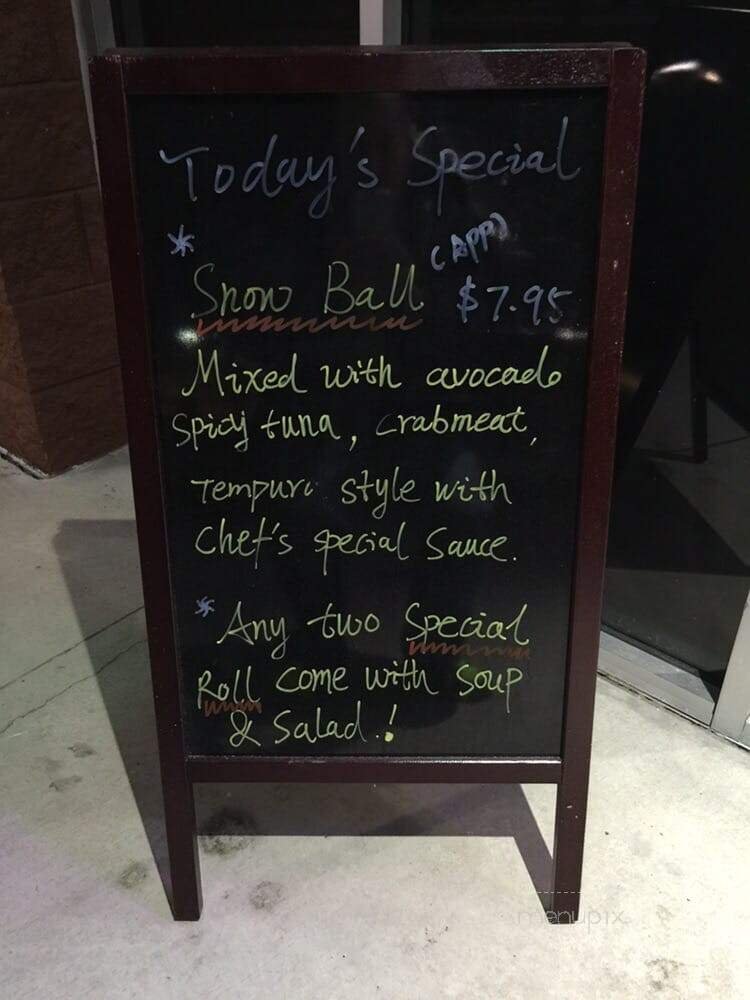 Today's Special
* (APP)
Snow Ball $7.95
Mixed with avocado
Spicy tuna, crabmeat,
Tempura style with
Chef's special Sauce.
* Any two Special
Roll come with Soup
& Salad.!
menupix